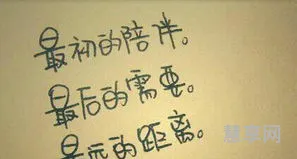 最初的陪伴。
最后的需要。
最远的距离。